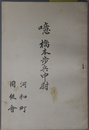 噫橋本歩兵中尉
河和町
同級会